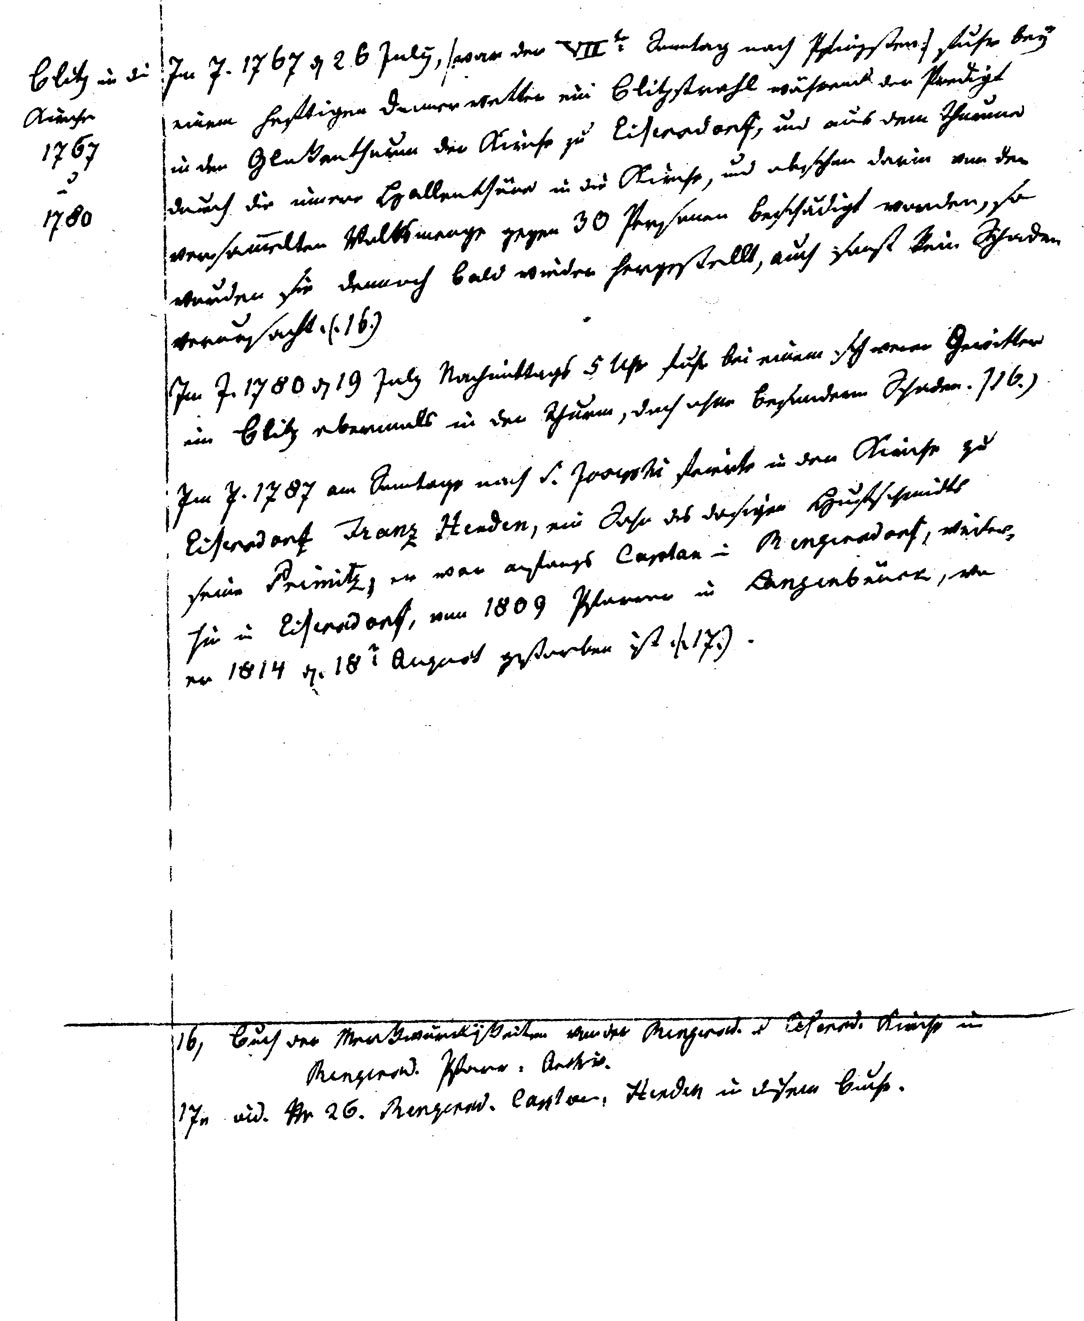 Blitz in di
Kirche
1767
u
1780
Im J. 1767 d 26 July, /:war der VII te Sonntag nach Pfingsten:/ fuhr bey
einem heftigen Donnerwetter ein Blitzstrahl während der Predigt
in den Glokenthurm der Kirche zu Eisersdorf, und aus dem Thurme
durch die innere Hallenthüre in die Kirche, und obschon darin von der
versam̅elten Volksmenge gegen 30 Personen beschädigt worden, so
wurden sie dennoch bald wieder hergestellt, auch sonst kein Schaden
verursacht. (:16.)
Im J. 1780 d 19 July Nachmittags 5 Uhr fuhr bei einem schweren Gewitter
ein Blitz abermals in den Thurm, doch ohne besondern Schaden. /16.)
Im J. 1787 am Sonntage nach S. Josephi feierte in der Kirche zu
Eisersdorf Franz Herden, ein Sohn des dasigen Hufschmidts
seine Primitz, er war anfangs Caplan in Rengersdorf, weiter-
hin in Eisersdorf, von 1809 Pfarrer in Langenbrück, wo
er 1814 d. 18 t August gestorben ist. (:17.) .
16, Buch der Merkwürdigkeiten von der Rengersd. u Eisersd. Kirche im
Rengersd. Pfarr. Archiv.
17, vid. Nr 26. Rengersd. Caplan, Herden in diesem Buche.